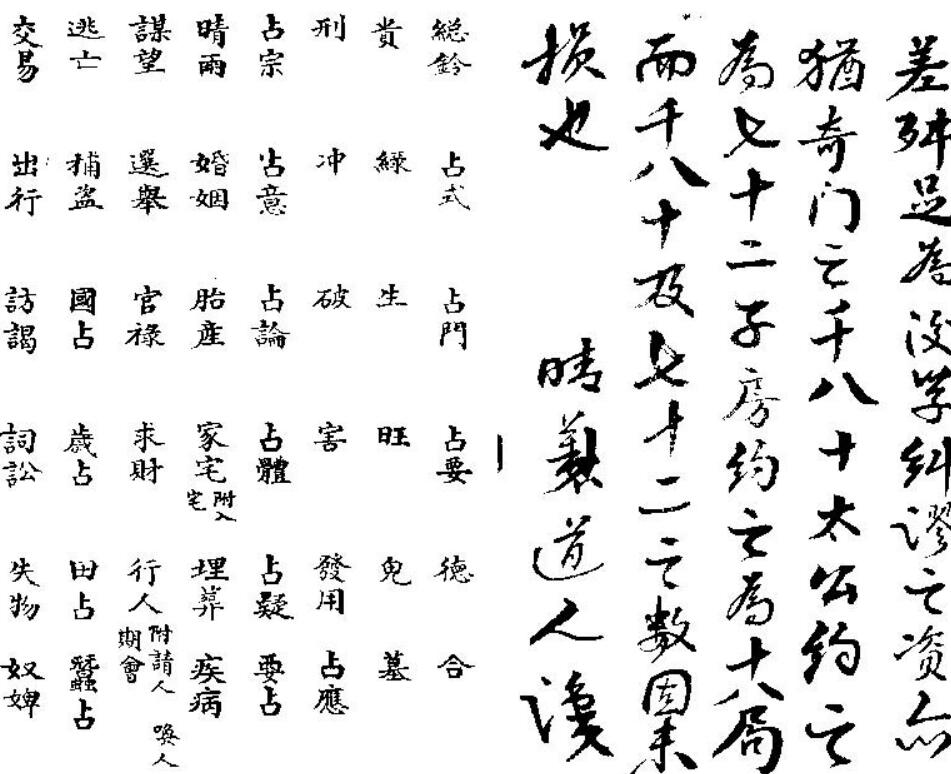 差舛足為後学糾謬之资亦
猶奇门之千八十太公约之
為七十二子房约之為十八局
而千八十及七十二之數固未
损也 晴 道人
総鈐 占式 占門 占要 德 合
貴 緑 生 旺 鬼 墓
刑 冲 破 害 發用 占應
占宗 占意 占論 占體 占疑 要占
晴雨 婚姻 胎産 家宅附入宅 埋葬 疾病
謀望 選舉 官禄 求財 行人附請人 喚人期會
逃亡 捕盗 國占 歲占 田占 蠶占
交易 出行 訪謁 詞訟 失物 奴婢